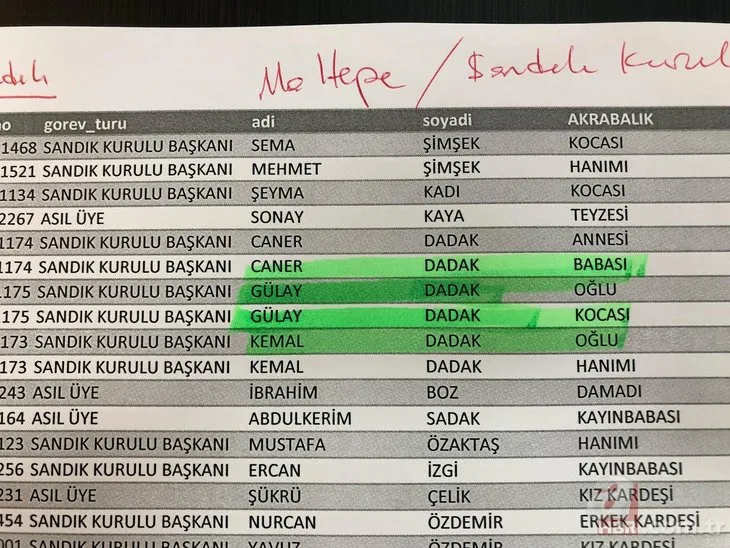 Maltepe / Sandık Kurul
no gorev_turu adi soyadi AKRABALIK
1468 SANDIK KURULU BAŞKANI SEMA ŞİMŞEK KOCASI
1521 SANDIK KURULU BAŞKANI MEHMET ŞİMŞEK HANIMI
1134 SANDIK KURULU BAŞKANI ŞEYMA KADI KOCASI
2267 ASIL ÜYE SONAY KAYA TEYZESİ
1174 SANDIK KURULU BAŞKANI CANER DADAK ANNESİ
1174 SANDIK KURULU BAŞKANI CANER DADAK BABASI
1175 SANDIK KURULU BAŞKANI GÜLAY DADAK OĞLU
1175 SANDIK KURULU BAŞKANI GÜLAY DADAK KOCASI
173 SANDIK KURULU BAŞKANI KEMAL DADAK OĞLU
173 SANDIK KURULU BAŞKANI KEMAL DADAK HANIMI
243 ASIL ÜYE İBRAHİM BOZ DAMADI
164 ASIL ÜYE ABDULKERİM SADAK KAYINBABASI
123 SANDIK KURULU BAŞKANI MUSTAFA ÖZAKTAŞ HANIMI
256 SANDIK KURULU BAŞKANI ERCAN İZGİ KAYINBABASI
231 ASIL ÜYE ŞÜKRÜ ÇELİK KIZ KARDEŞİ
454 SANDIK KURULU BAŞKANI NURCAN ÖZDEMİR ERKEK KARDEŞİ
001 SANDIK KURULU BAŞKANI YAVUZ ÖZDEMİR KIZ KARDEŞİ